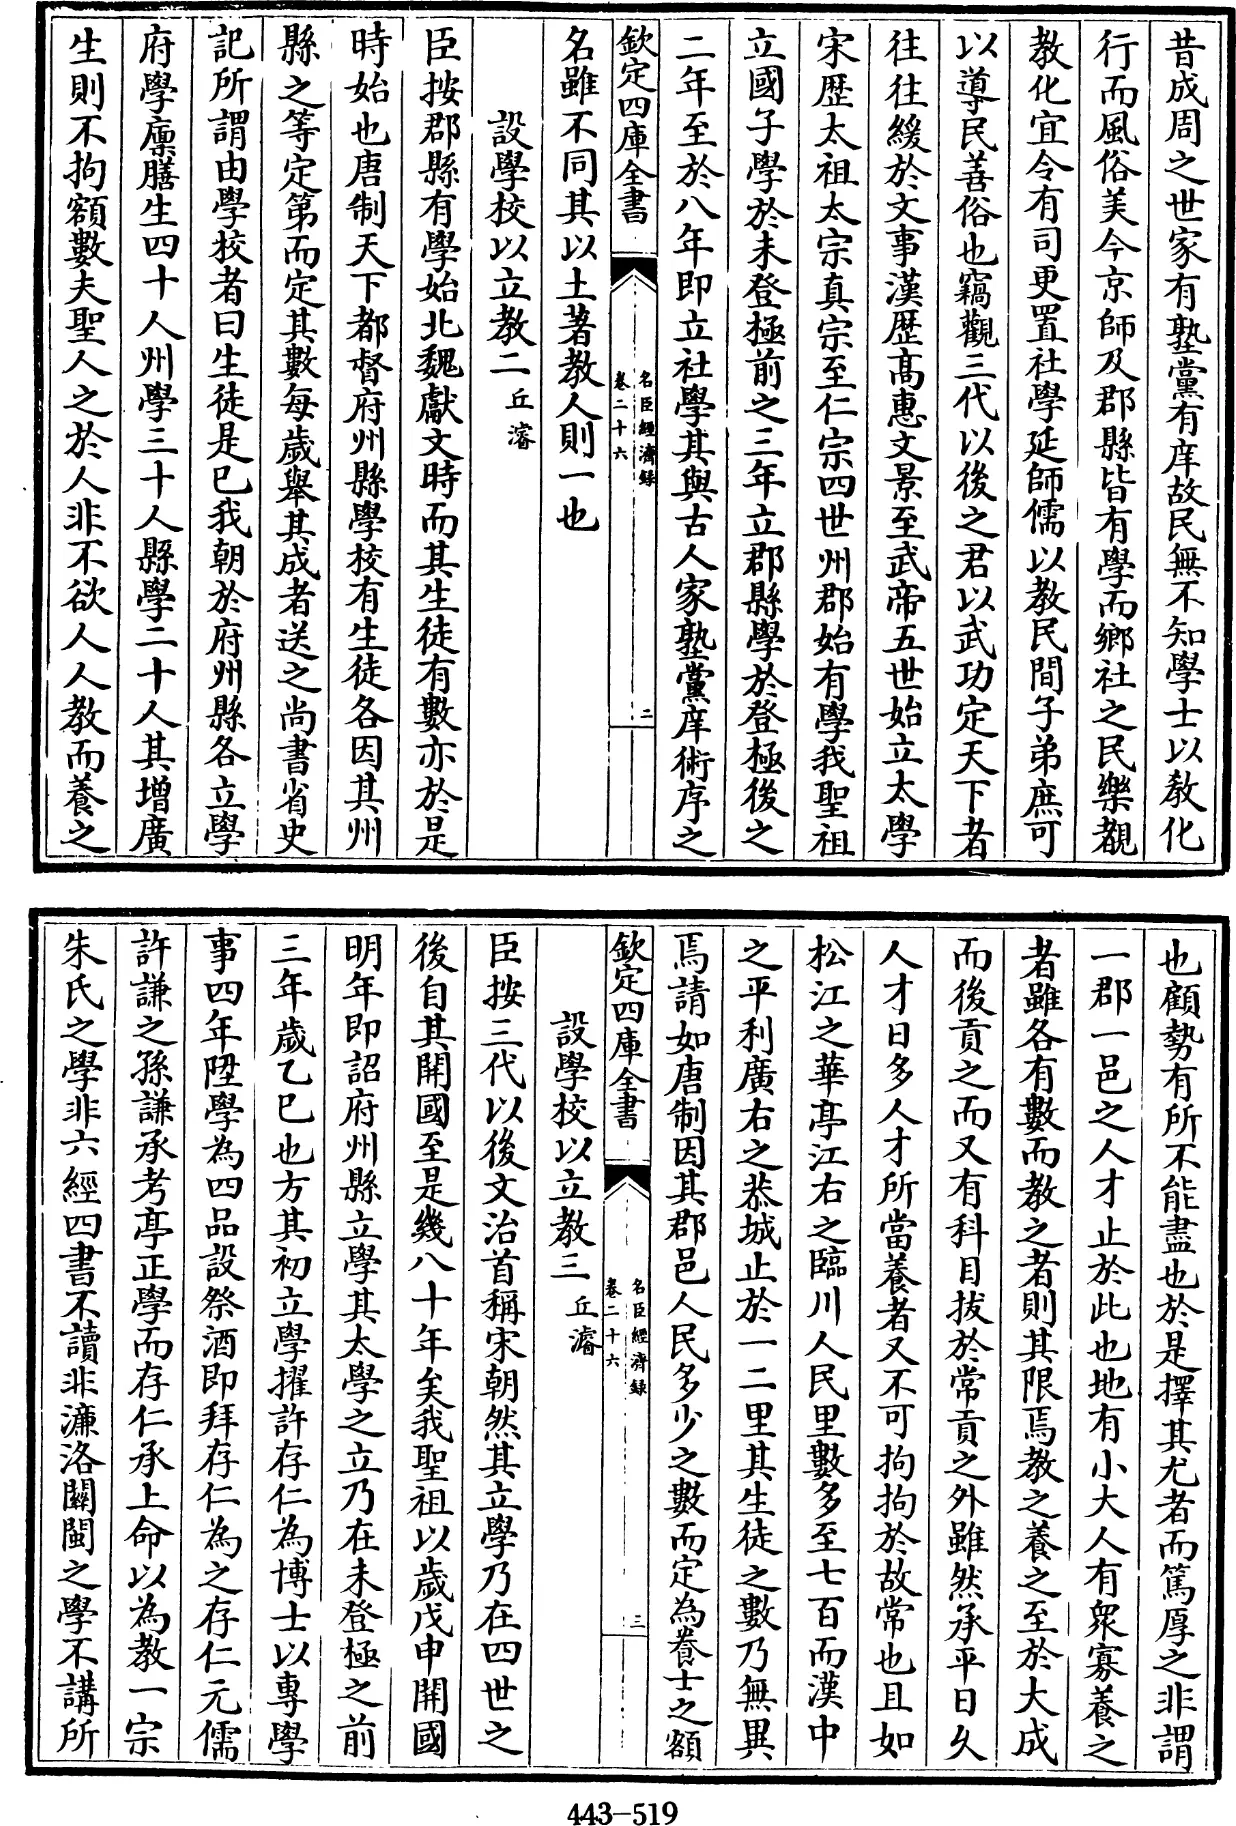 昔成周之世家有塾黨有庠故民無不知學士以教化
行而風俗美今京師及郡縣皆有學而鄉社之民樂覩
教化宜令有司更置社學延師儒以教民間子弟庶可
以導民善俗也竊觀三代以後之君以武功定天下者
往往緩於文事漢歷高惠文景至武帝五世始立太學
宋歷太祖太宗真宗至仁宗四世州郡始有學我聖祖
立國子學於未登極前之三年立郡縣學於登極後之
二年至於八年即立社學其與古人家塾黨庠術序之
欽定四庫全書
名臣經濟録
卷二十六
二
名雖不同其以土著教人則一也
設學校以立教二 丘濬
臣按郡縣有學始北魏獻文時而其生徒有數亦於是
時始也唐制天下都督府州縣學校有生徒各因其州
縣之等定第而定其數每歲舉其成者送之尚書省史
記所謂由學校者曰生徒是已我朝於府州縣各立學
府學廩膳生四十人州學三十人縣學二十人其增廣
生則不拘額數夫聖人之於人非不欲人人教而養之
也顧勢有所不能盡也於是擇其尤者而篤厚之非謂
一郡一邑之人才止於此也地有小大人有衆寡養之
者雖各有數而教之者則其限焉教之養之至於大成
而後貢之而又有科目拔於常貢之外雖然承平日久
人才日多人才所當養者又不可拘拘於故常也且如
松江之華亭江右之臨川人民里數多至七百而漢中
之平利廣右之恭城止於一二里其生徒之數乃無異
焉請如唐制因其郡邑人民多少之數而定為養士之額
欽定四庫全書
名臣經濟録
卷二十六
三
設學校以立教三 丘濬
臣按三代以後文治首稱宋朝然其立學乃在四世之
後自其開國至是幾八十年矣我聖祖以歲戊申開國
明年即詔府州縣立學其太學之立乃在未登極之前
三年歲乙巳也方其初立學擢許存仁為博士以專學
事四年陞學為四品設祭酒即拜存仁為之存仁元儒
許謙之孫謙承考亭正學而存仁承上命以為教一宗
朱氏之學非六經四書不讀非濂洛關閩之學不講所
443-519